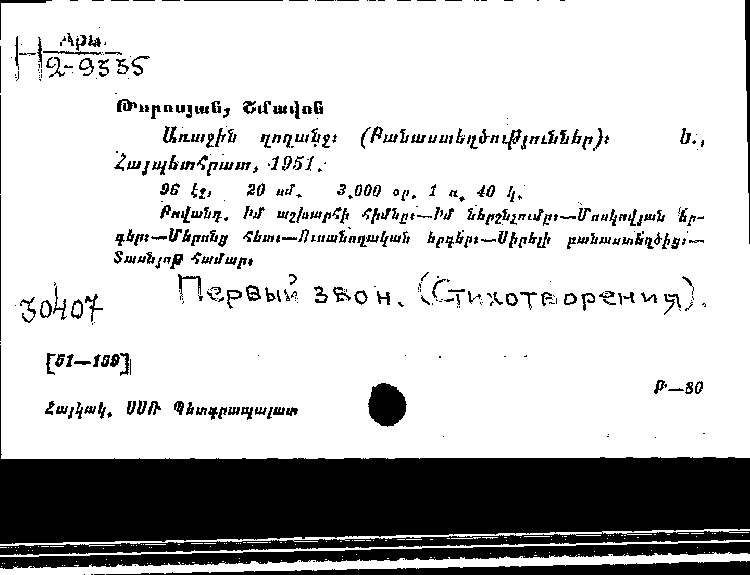 Арм.
Н 2-9335
Թորոսյան, Շմավոն
Առաջին ղողանջ։ (Բանաստեղծություններ)։ Ե.,
Հայպետհրատ, 1951.
96 էջ, 20 սմ. 3.000 օր. 1 ռ. 40 կ.
Բովանդ. Իմ աշխարհի հիմնը։—Իմ ներշնչումը։—Մոսկովյան եր-
գեր։—Մերոնց հետ։—Ուսանողական երգեր։—Սիրելի բանաստեղծից։—
Տասնյոթ համար։
Первый звон. (Стихотворения).
30407
[51—159]
Թ—80
Հայկակ. ՍՍՌ Պետգրապալատ